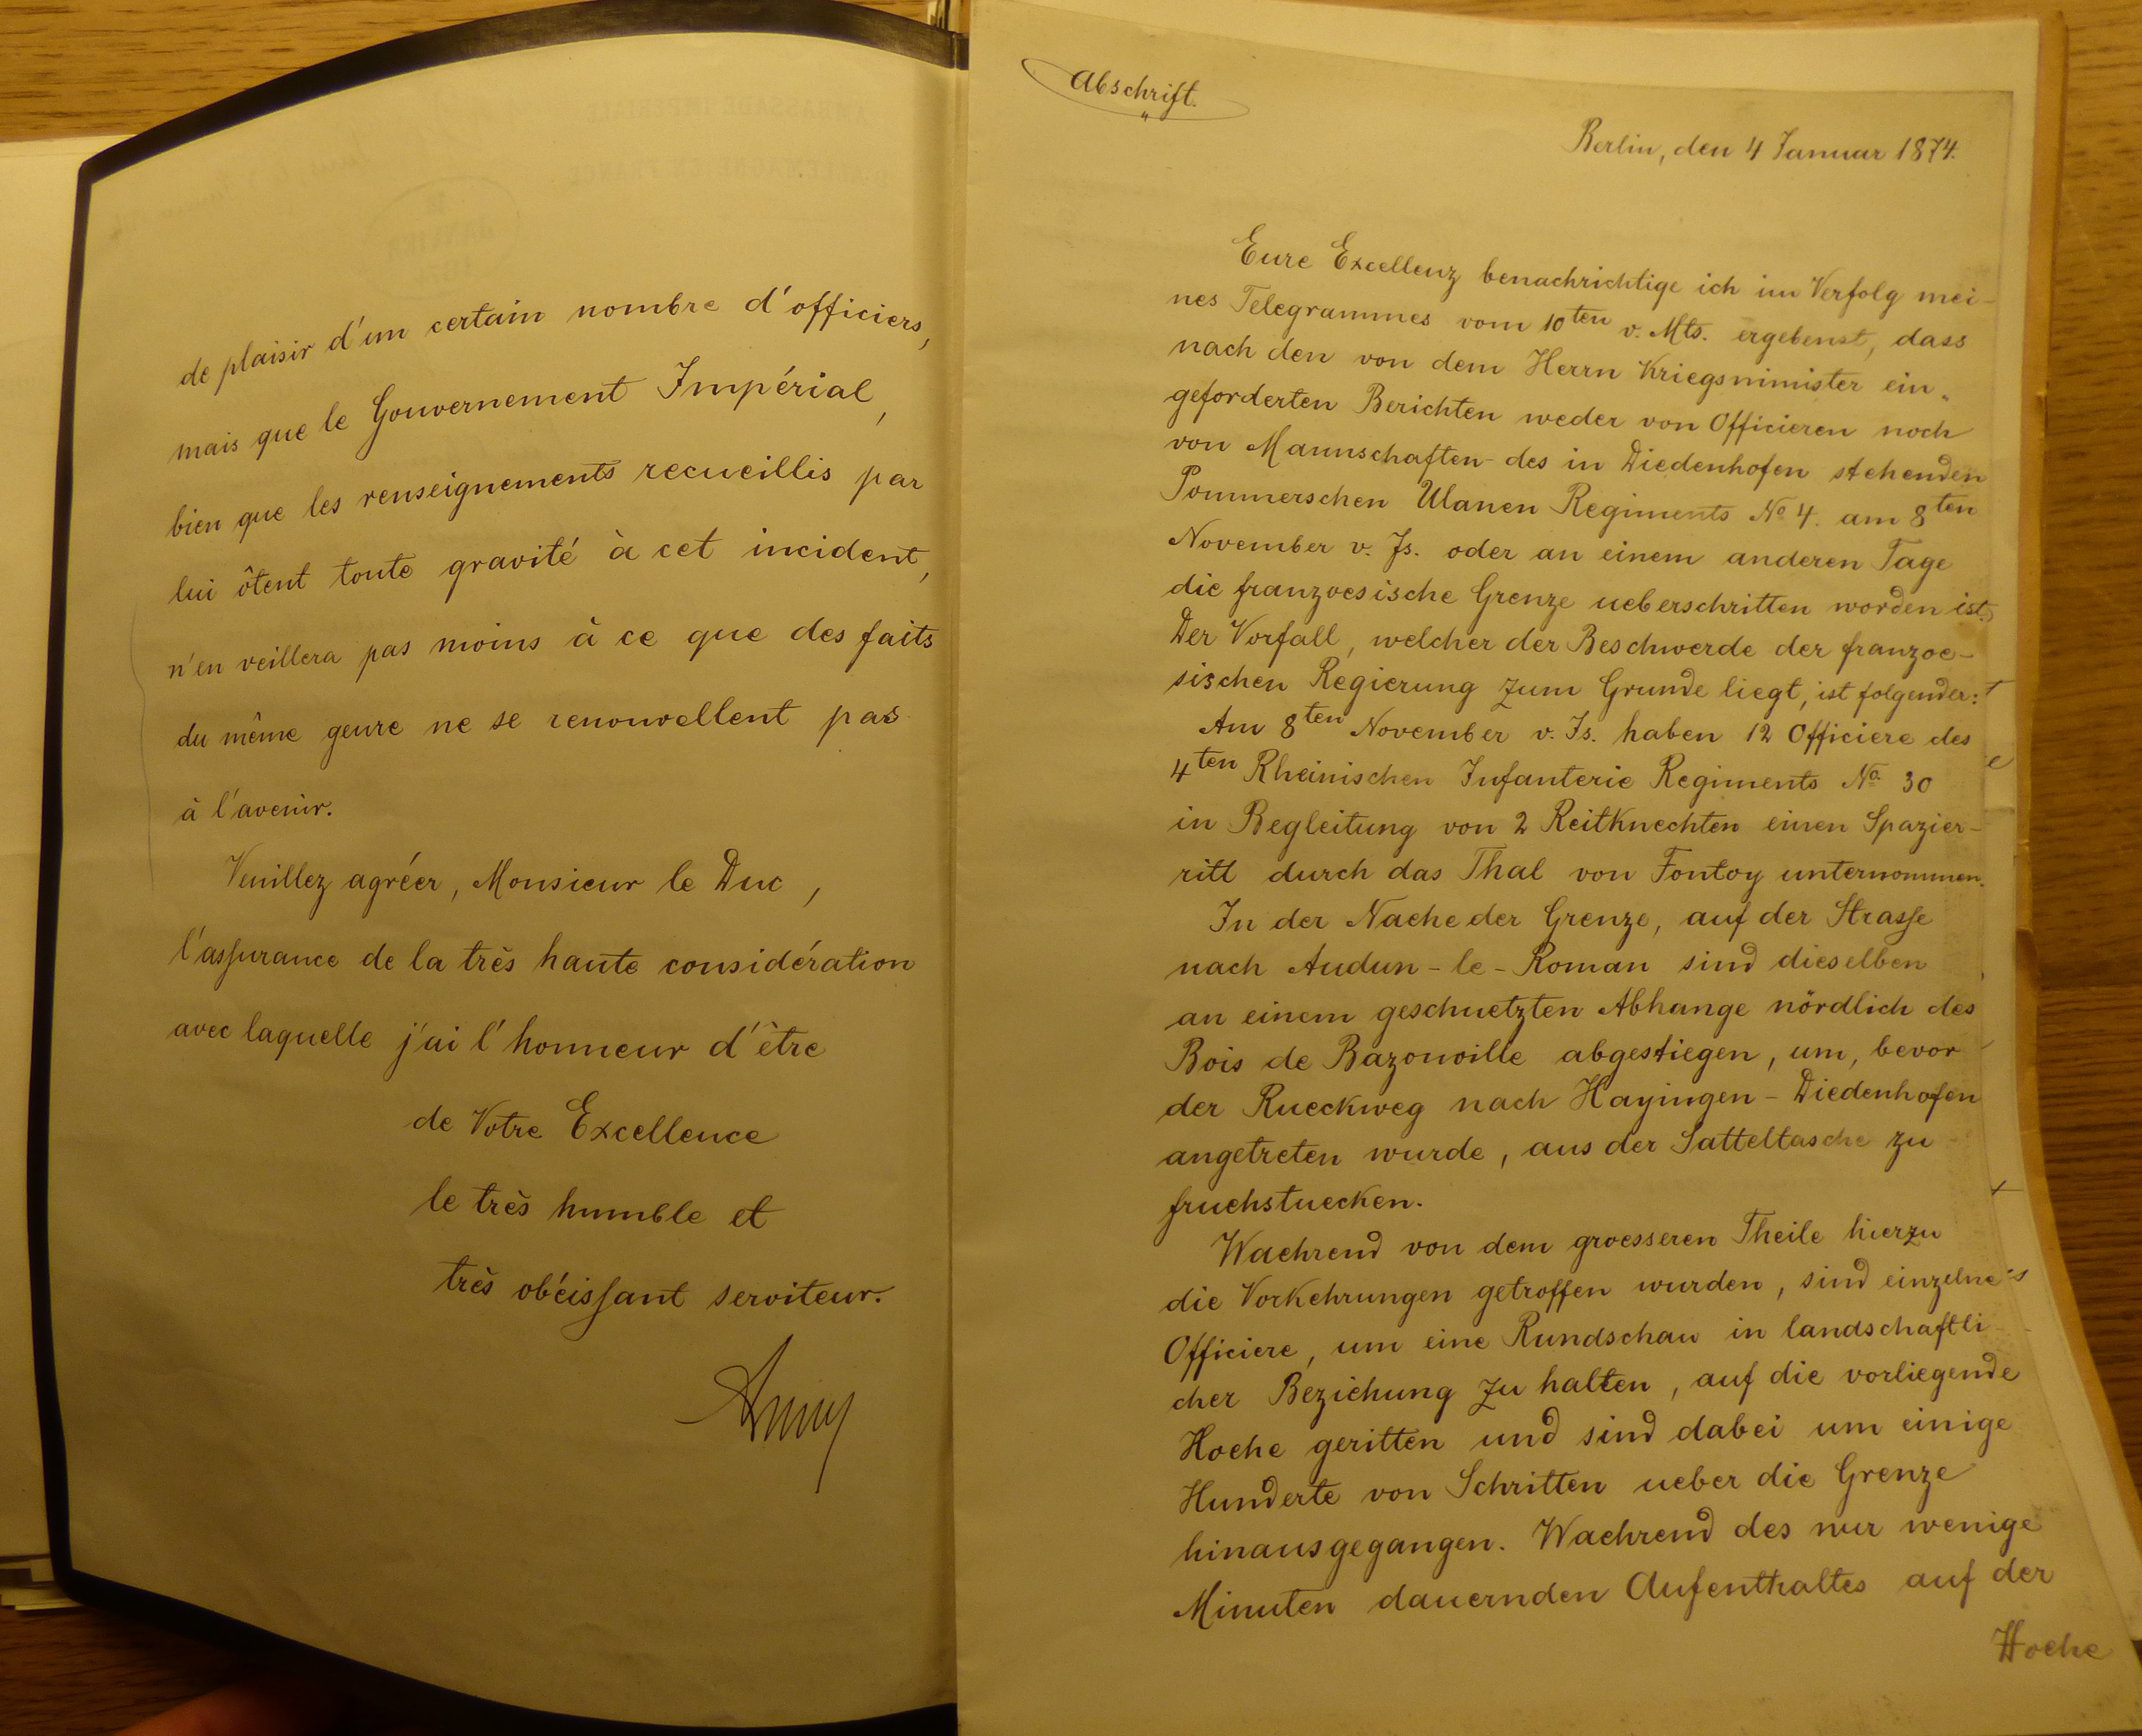 de plaisir d'un certain nombre d'officiers,
mais que le Gouvernement Impérial,
bien que les renseignements recueillis par
lui ôtent toute gravité à cet incident,
n'en veillera pas moins à ce que des faits
du même genre ne se renouvellent pas
à l'avenir.
Veuillez agréer, Monsieur le Duc,
l'assurance de la très haute considération
avec laquelle j'ai l'honneur d'être
de Votre Excellence
le très humble et
très obéissant serviteur.
Abschrift.
Berlin, den 4 Januar 1874.
Eure Excellenz benachrichtige ich im Verfolg mei-
nes Telegrammes vom 10ten v. Mts. ergebenst, dass
nach den von dem Herrn Kriegsminister ein-
geforderten Berichten weder von Officieren noch
von Mannschaften des in Diedenhofen stehenden
Pommerschen Ulanen Regiments No 4. am 8ten
November v. Js. oder an einem anderen Tage
die franzoesische Grenze ueberschritten worden ist.
Der Vorfall, welcher der Beschwerde der franzoe-
sischen Regierung zum Grunde liegt, ist folgender:
Am 8ten November v. Js. haben 12 Officiere des
4ten Rheinischen Infanterie Regiments No. 30
in Begleitung von 2 Reitknechten einen Spazier-
ritt durch das Thal von Fontoy unternommen.
In der Naehe der Grenze, auf der Strasse
nach Audun-le-Roman sind dieselben
an einem geschuetzten Abhange nördlich des
Bois de Bazonville abgestiegen, um, bevor
der Rueckweg nach Hayingen-Diedenhofen
angetreten wurde, aus der Satteltasche zu
fruehstuecken.
Waehrend von dem groesseren Theile hierzu
die Vorkehrungen getroffen wurden, sind einzelne
Officiere, um eine Rundschau in landschaftli-
cher Beziehung zu halten, auf die vorliegende
Hoehe geritten und sind dabei um einige
Hunderte von Schritten ueber die Grenze
hinausgegangen. Waehrend des nur wenige
Minuten dauernden Aufenthaltes auf der
Hoehe